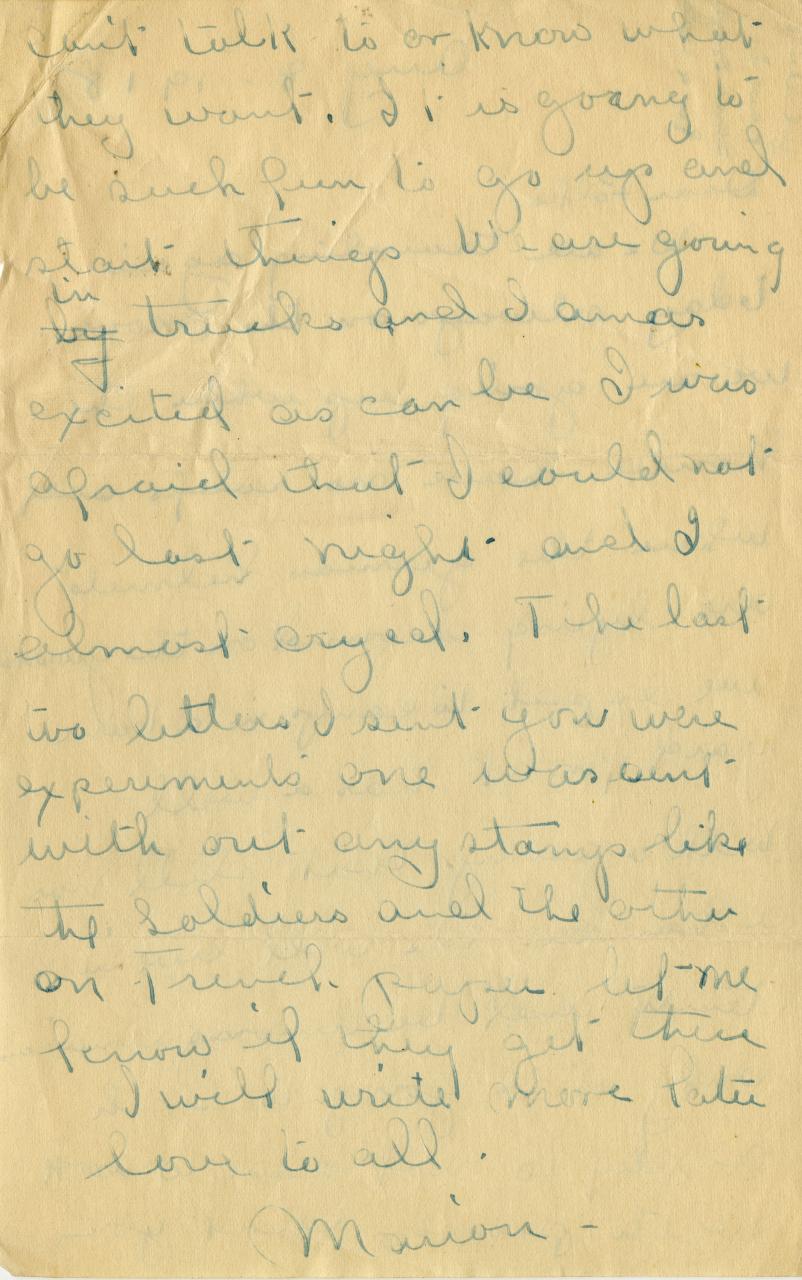 can't talk to or know what
they want. It is going to
be such fun to go up and
start things We are going
in
by trucks and I am as
excited as can be I was
afraid that I could not
go last night and I
almost cryed. The last
two letters I sent you were
experiments one was sent
with out any stamps like
the soldiers and the other
on French paper let me
know if they get there
I will write more later
love to all.
Marion -